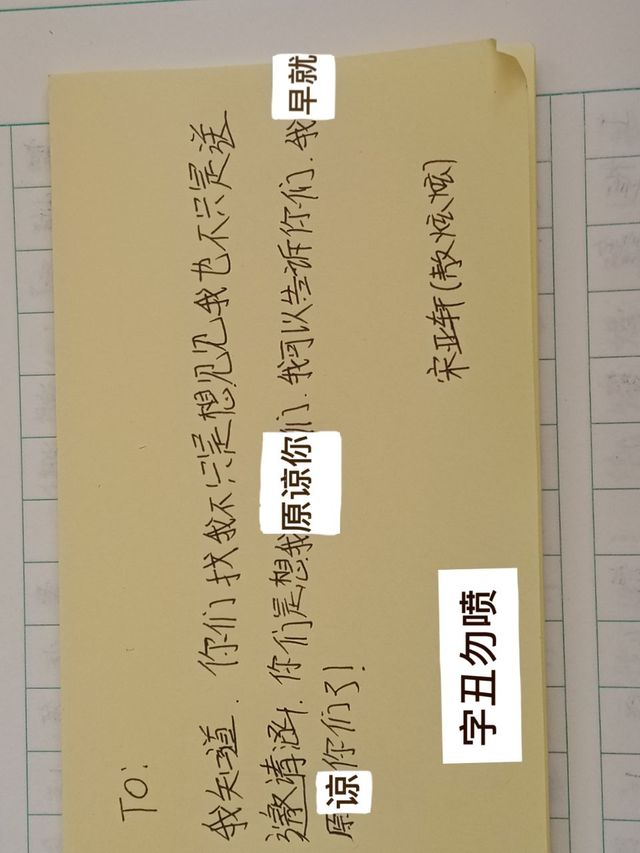 To:
我知道.你们找我不只是想见见我也不只是送
邀请涵.你们是想我原谅你们.我可以告诉你们.我早就
原谅你们了!
宋亚轩(敖炫炫)
字丑勿喷